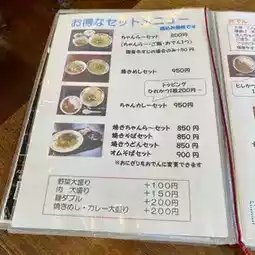 お得なセットメニュー
税込み価格です
ちゃんらーセット 800円
(ちゃんらー・ご飯・おでん1つ)
焼きめしセット 950円
トッピング
ひれかつ1枚200円~
ちゃんカレーセット 950円
焼きちゃんらーセット 850円
焼きそばセット 850円
焼きうどんセット 850円
オムそばセット 900円
※おにぎりをおでんに変更できます
野菜大盛り +100円
肉 大盛り +150円
麺ダブル +200円
焼きめし・カレー大盛り +200円